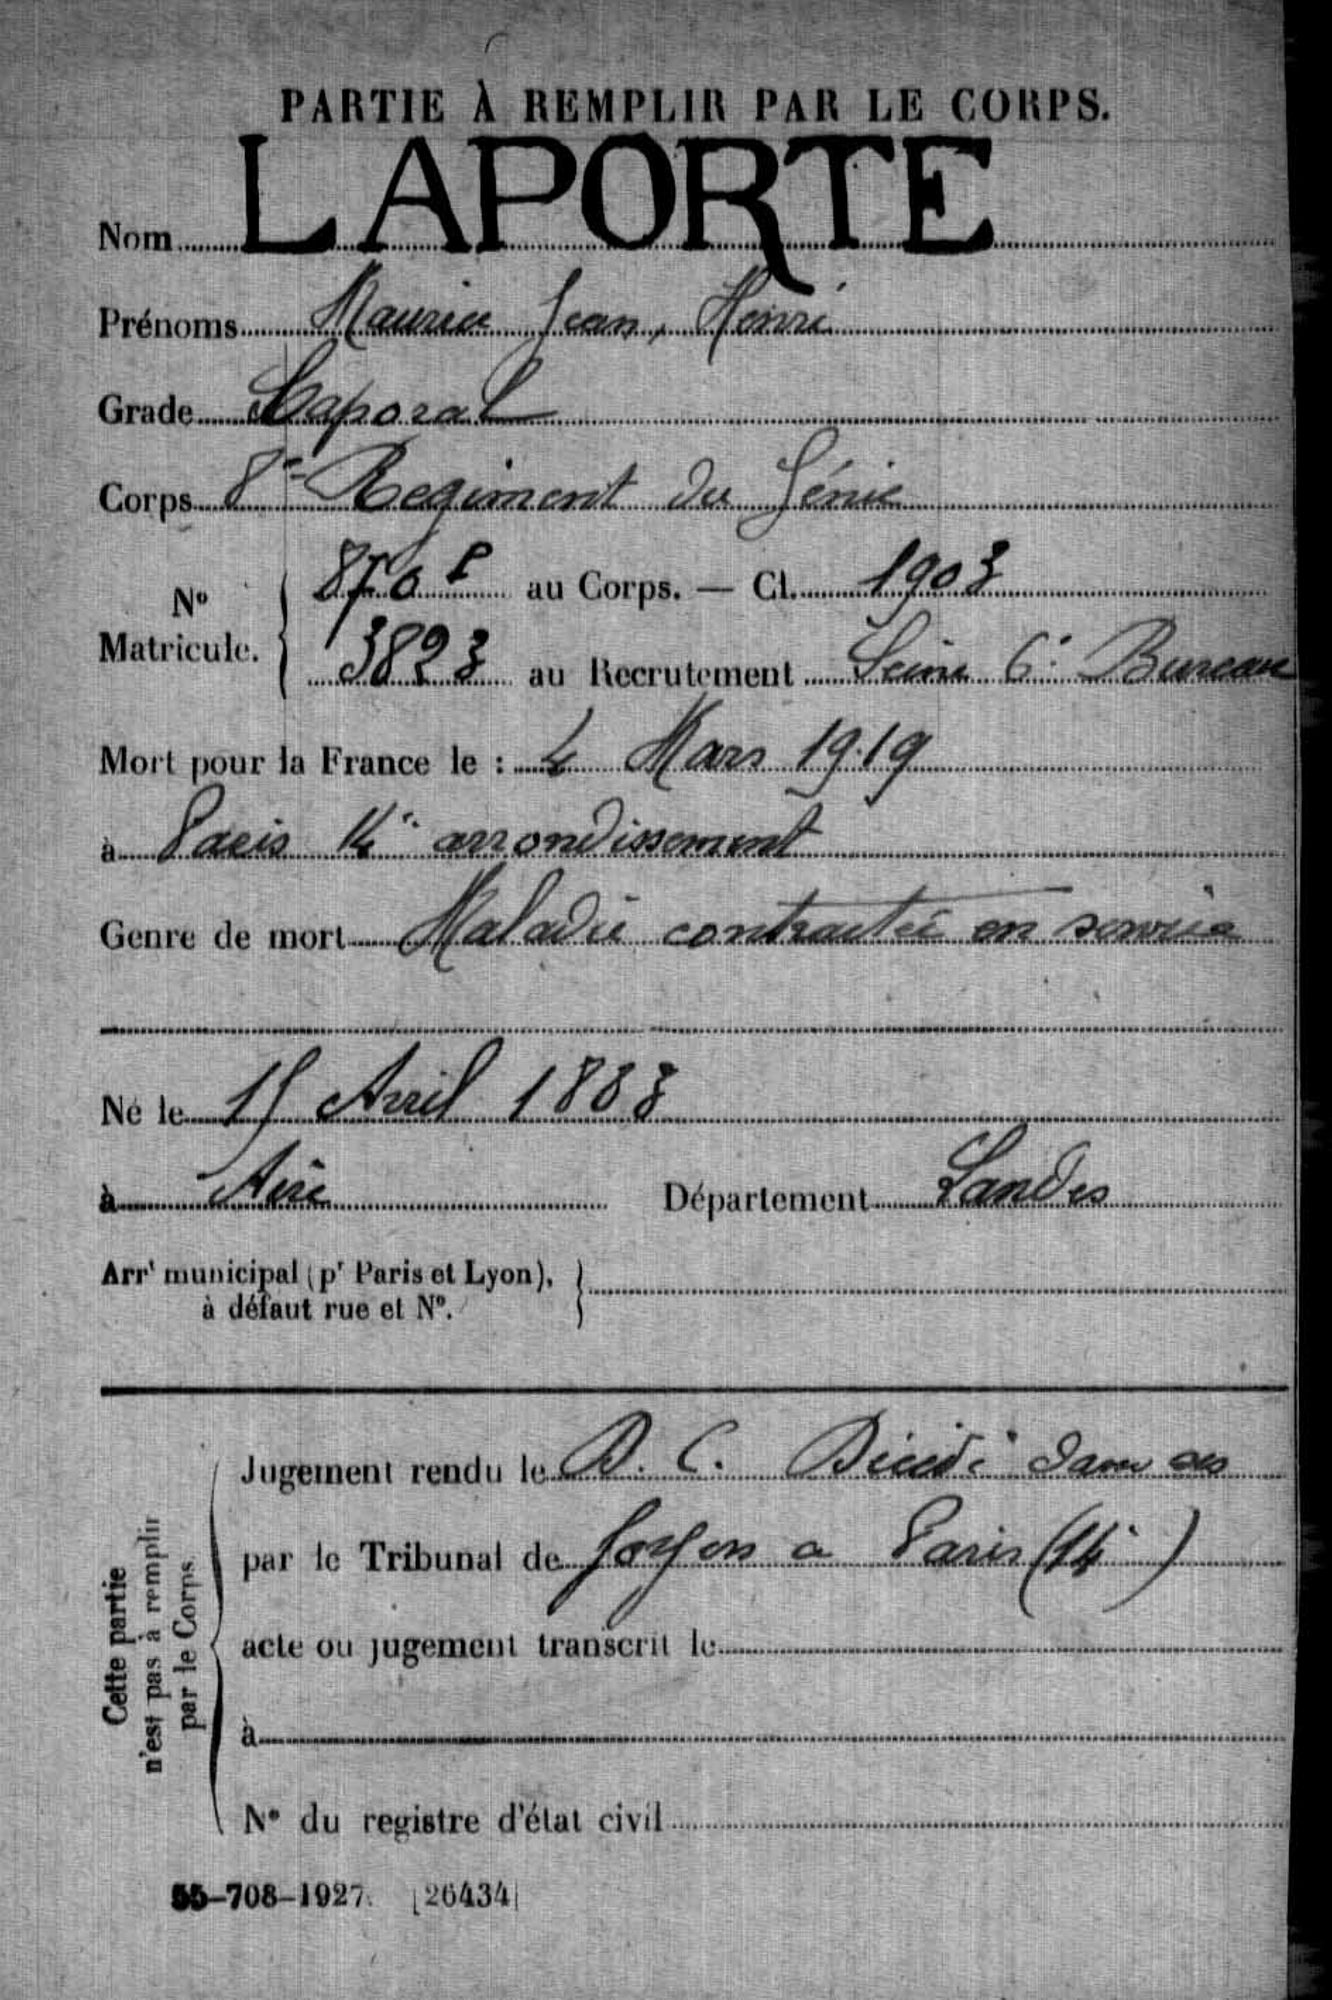 PARTIE À REMPLIR PAR LE CORPS.
Nom LAPORTE
Prénoms Maurice Jean, Henri
Grade Caporal
Corps 8e Regiment du Génie
No Matricule.
au Corps. — Cl. 1903
3823 au Recrutement Seine 6e Bureau
Mort pour la France le : 4 Mars 1919
à Paris 14e arrondissement
Genre de mort Maladie contractée en service
Né le 15 Avril 1883
à Aire Département Landes
Arrt municipal (pr Paris et Lyon),
à défaut rue et No.
Cette partie
n'est pas à remplir
par le Corps
Jugement rendu le D. C. Décédé dans ses
par le Tribunal de foyers a Paris (14e)
acte ou jugement transcrit le
à
No du registre d'état civil
55-708-1927. [26434]